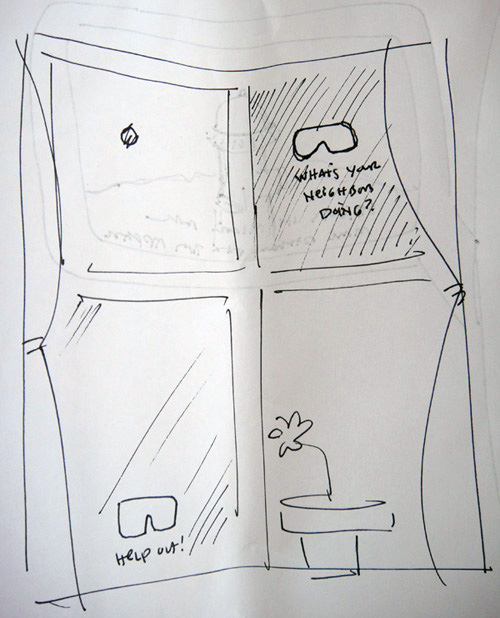 WHAT'S YOUR
NEIGHBOR
DOING?
HELP OUT!